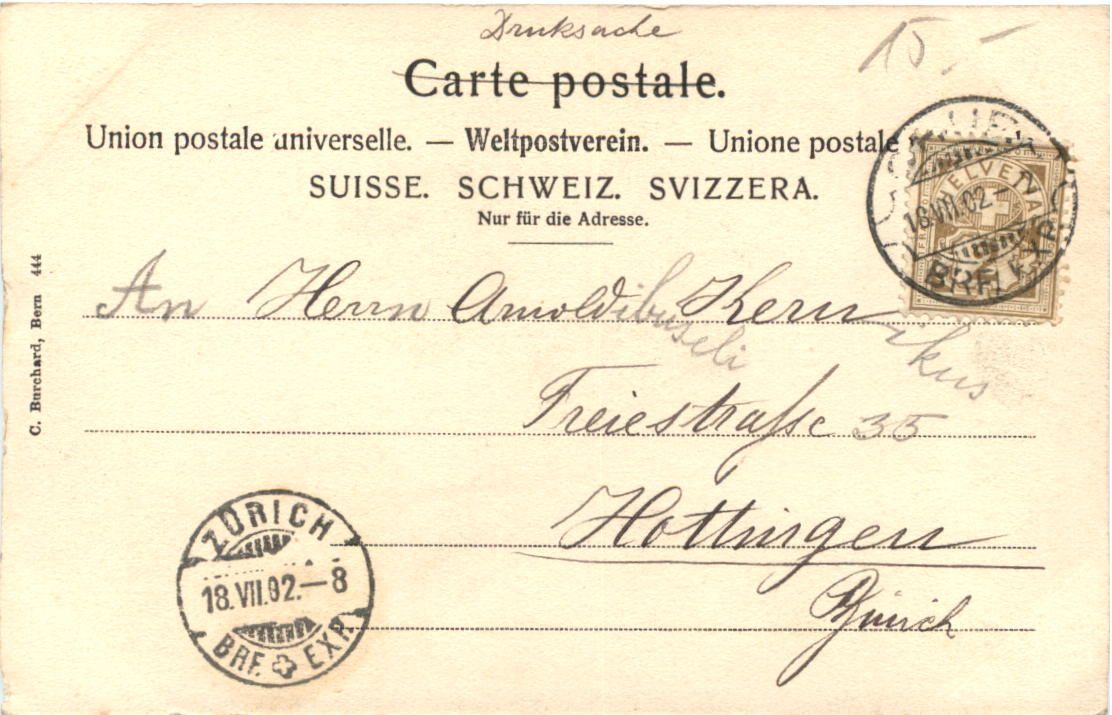 Druksache
15.-
Carte postale.
Union postale universelle. — Weltpostverein. — Unione postale
SUISSE. SCHWEIZ. SVIZZERA.
Nur für die Adresse.
HELVETIA
18.VII.02.—
BRF. EXP.
C. Burchard, Bern 444
An Herrn Arnold Kern
Freiestraße 35
Hottingen
Zürich
ZÜRICH
18.VII.02.—8
BRF. EXP.